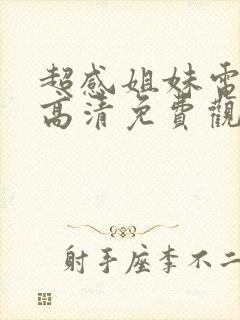 超感姐妹電
高清免費觀
射手座李不二